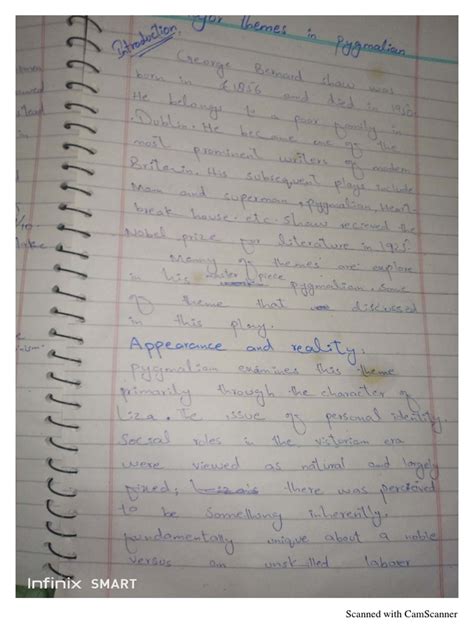 jor themes in pygmalian
Introduction.
Greorge Bernard shaw was
born in 1856 and died in 1950
He belongs to a poor family in
Dublin. He became one of the
most prominent writers of modern
Britain. His subsequent plays include
Man and superman, pygmalian, Heart-
break house. etc. shaw recieved the
Nobel prize for literature in 1925.
Manny of themes are explore
in his master piece pygmalian. Some
of theme that discussed
in this play.
Appearance and reality.
pygmalian examines this theme
primarily through the character of
Liza. The issue of personal identity.
Social roles in the victoriam era
were viewed as natural and largely
fixed; there was percieved
to be something inherently,
fundamentally unique about a noble
versus an unskilled laborer
Infinix SMART
Scanned with CamScanner